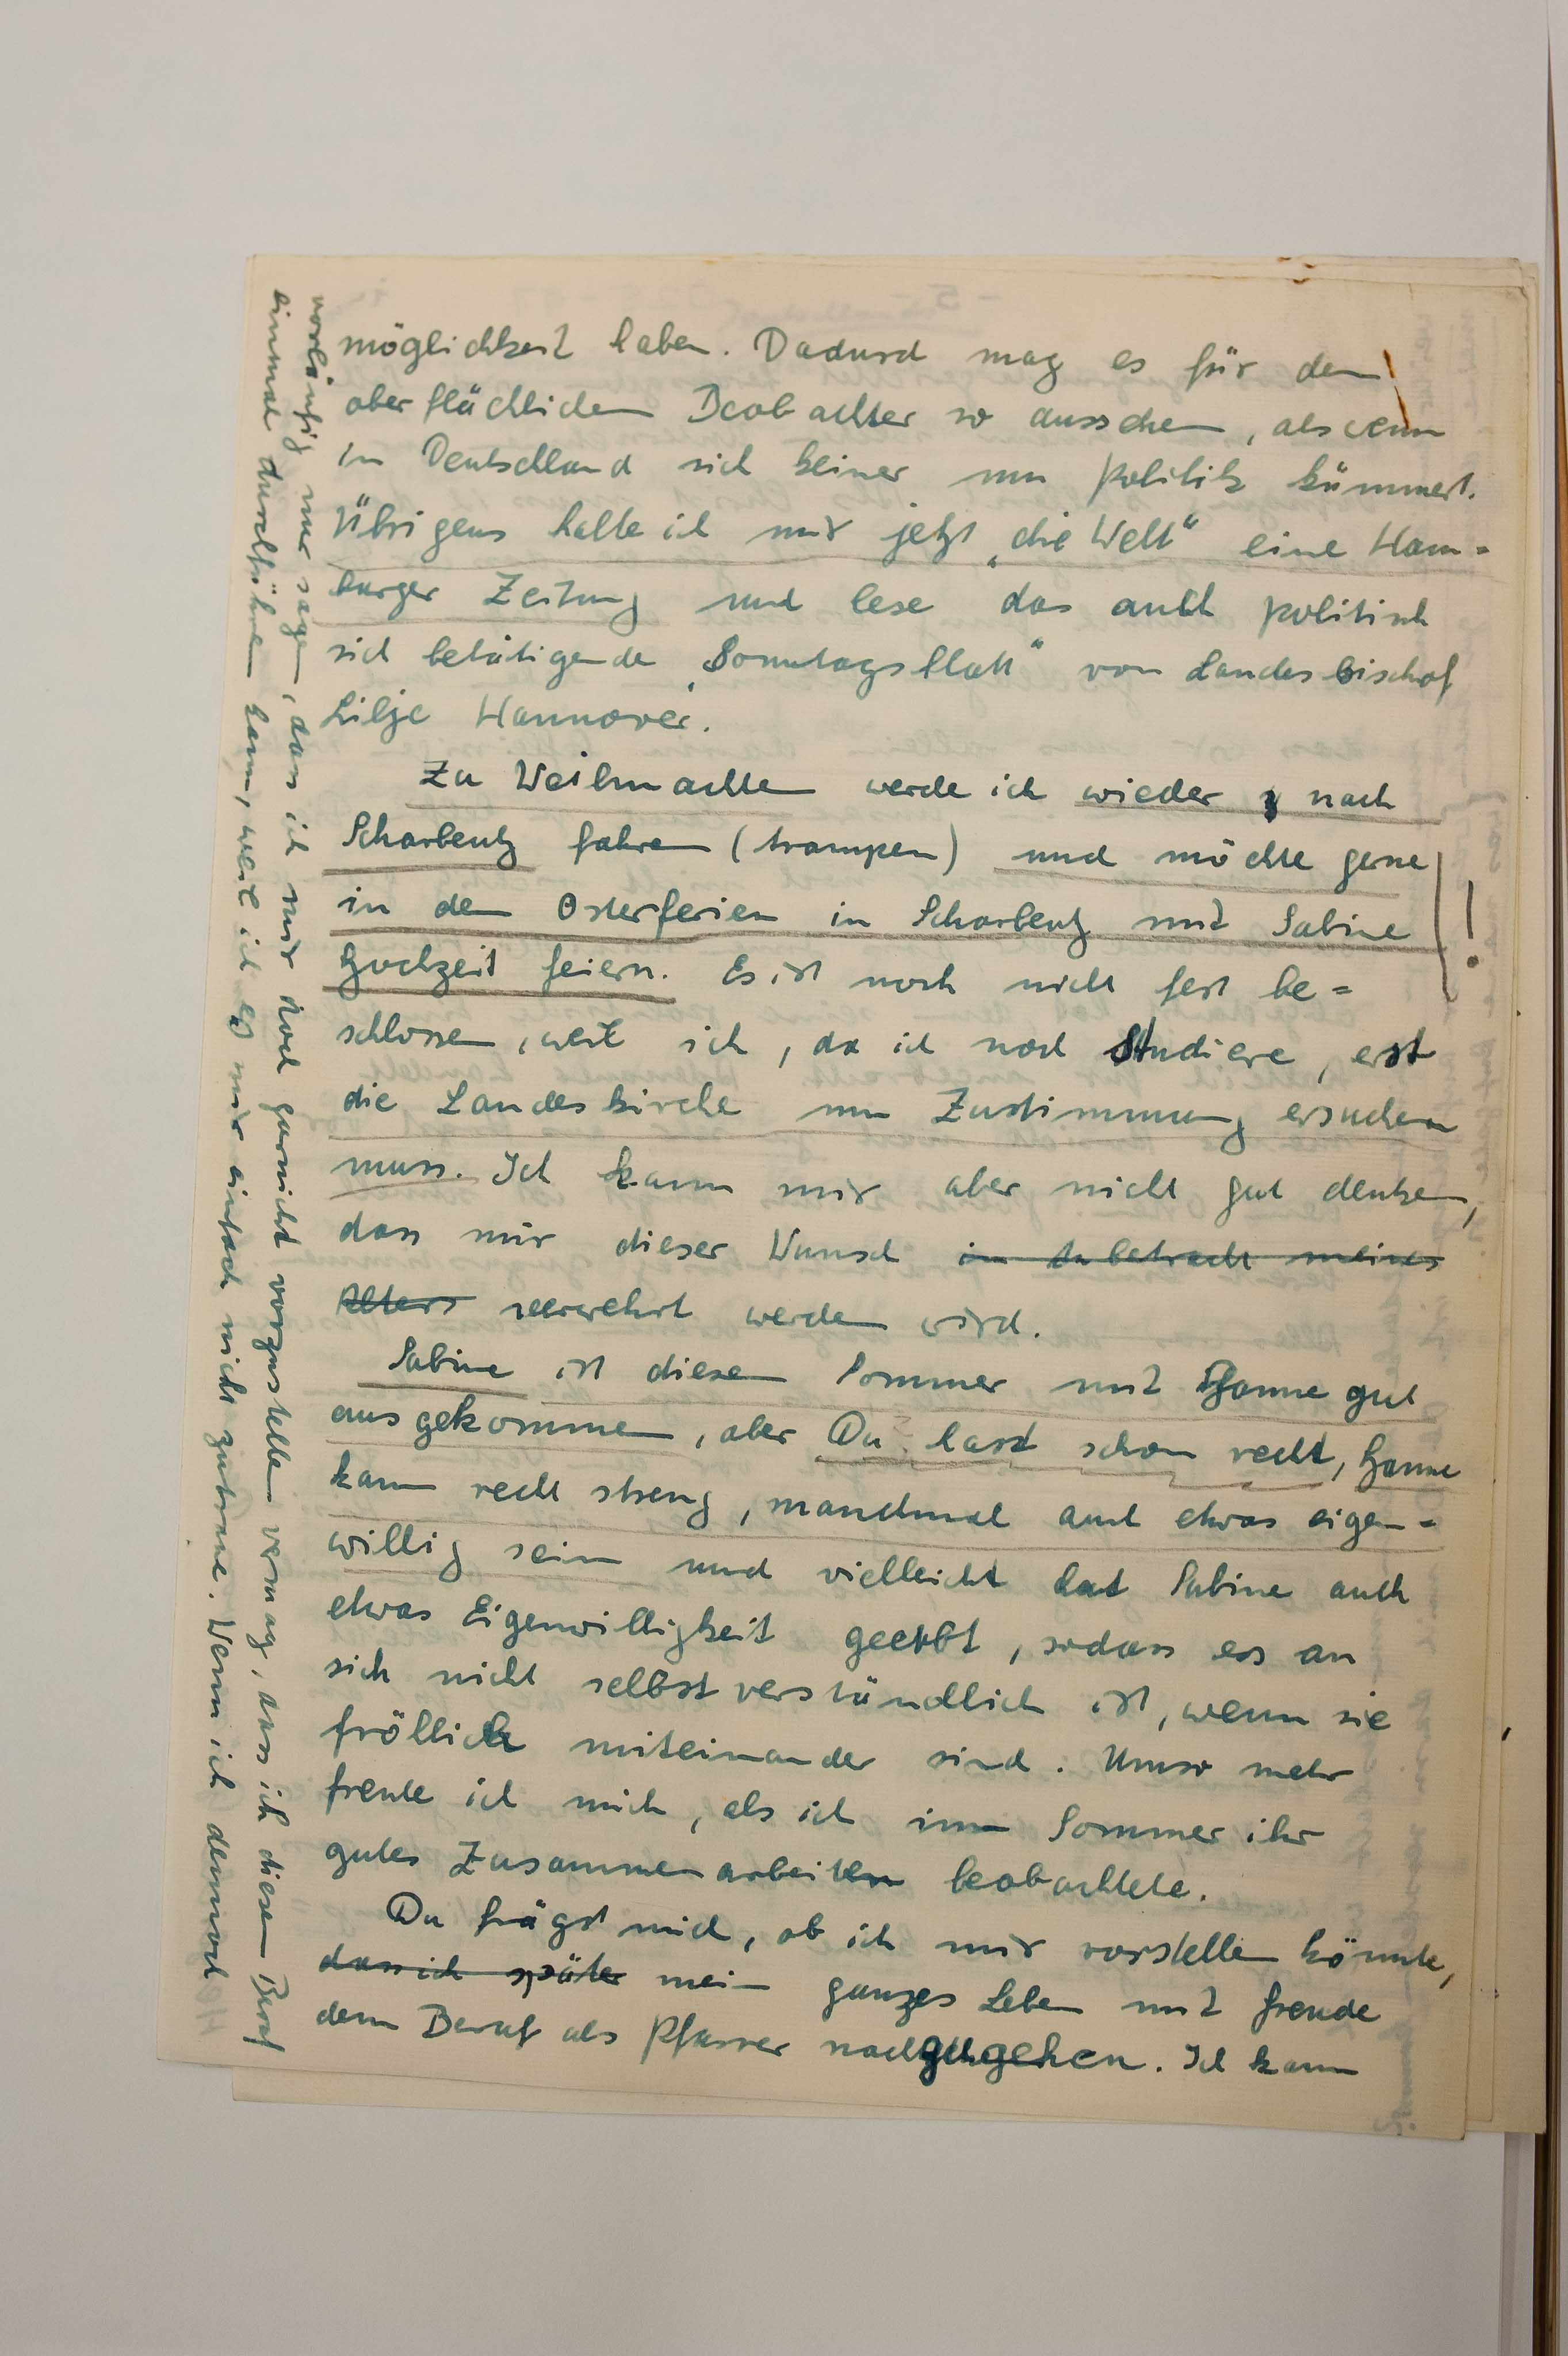 möglichkeit haben. Dadurch mag es für den
oberflächlichen Beobachter so aussehen, als wenn
in Deutschland sich keiner um Politik kümmert.
Übrigens halte ich mir jetzt „die Welt“ eine Ham=
burger Zeitung und lese das auch politisch
sich betätigende „Sonntagsblatt“ von Landesbischof
Lilje Hannover.
Zu Weihnachten werde ich wieder nach
Scharbeutz fahren (trampen) und möchte gerne
in den Osterferien in Scharbeutz mit Sabine
Hochzeit feiern. Es ist noch nicht fest be=
schlossen, weil ich, da ich noch Studiere, erst
die Landeskirche um Zustimmung ersuchen
muss. Ich kann mir aber nicht gut denken,
dass mir dieser Wunsch in Anbetracht meines
Alters verwehrt werden wird.
Sabine ist diesen Sommer mit Hanne gut
ausgekommen, aber Du hast schon recht, Hanne
kann recht streng, manchmal auch etwas eigen=
willig sein und vielleicht hat Sabine auch
etwas Eigenwilligkeit geerbt, sodass es an
sich nicht selbstverständlich ist, wenn sie
fröhlich miteinander sind. Umso mehr
freute ich mich, als ich im Sommer ihr
gutes Zusammenarbeiten beobachtete.
Du frägst mich, ob ich mir vorstellen könnte,
dass ich später mein ganzes Leben mit Freude
dem Beruf als Pfarrer nachzugehen. Ich kann
vorläufig nur sagen, dass ich mir noch garnicht vorzustellen vermag, dass ich diesen Beruf
einmal durchführen kann, weil ich es mir einfach nicht zutraue. Wenn ich dennoch